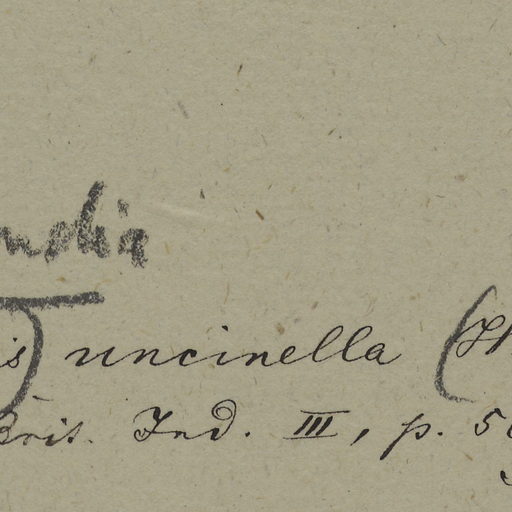 ndia
is) uncinella (H
Brit. Ind. III, p. 5